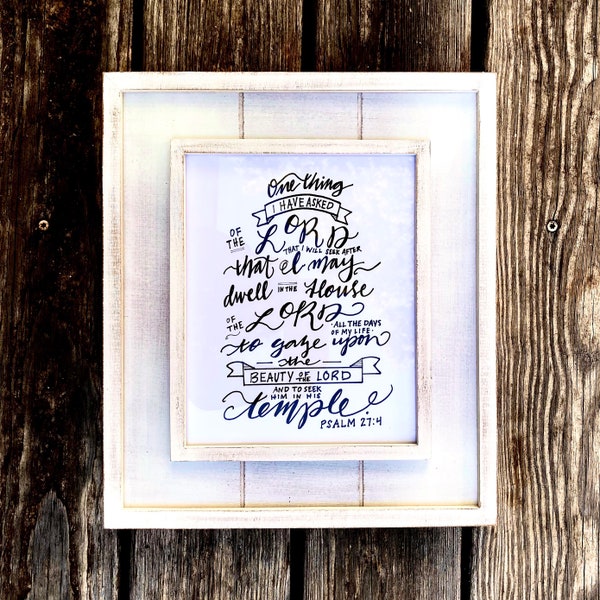 One thing
I HAVE ASKED
OF THE LORD
THAT I WILL SEEK AFTER
that I may
dwell IN THE House
OF THE LORD
·ALL THE DAYS
OF MY LIFE·
to gaze upon
the
BEAUTY OF THE LORD
AND TO SEEK
HIM IN HIS
temple.
PSALM 27:4